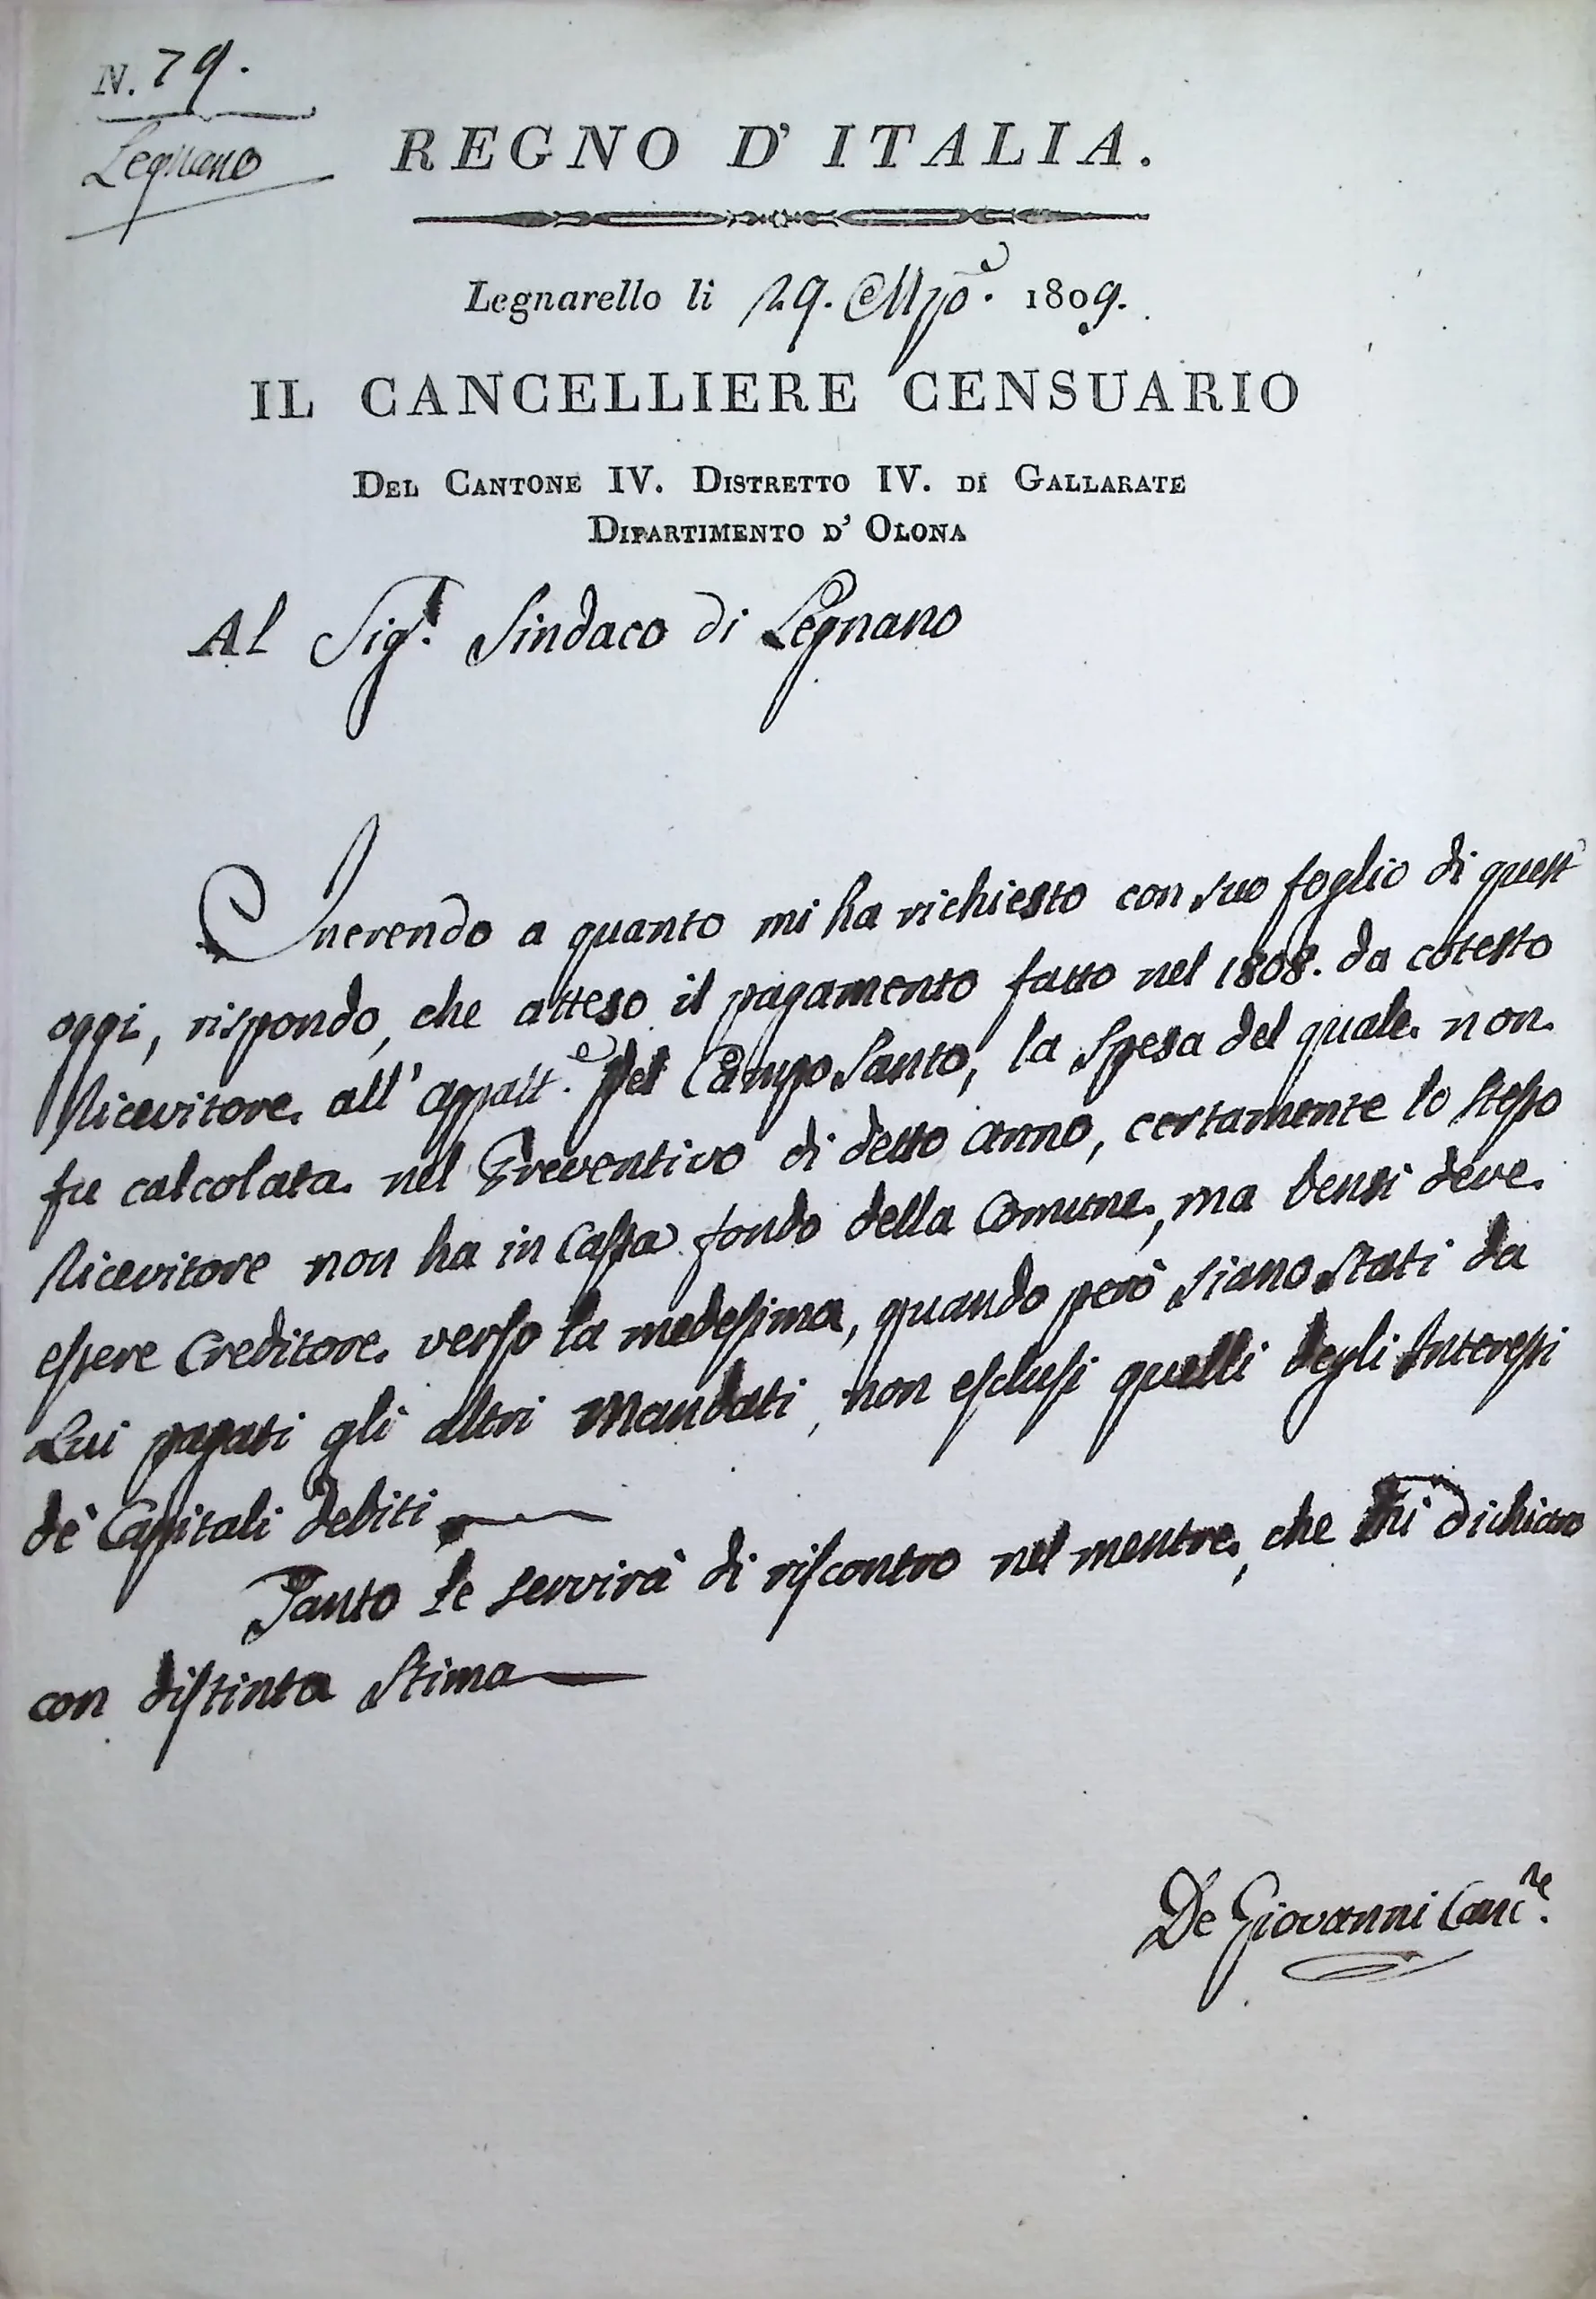 N. 79.
Legnano
REGNO D' ITALIA.
Legnarello li 29. Mzo. 1809.
IL CANCELLIERE CENSUARIO
DEL CANTONE IV. DISTRETTO IV. DI GALLARATE
DIPARTIMENTO D' OLONA
Al Sigr. Sindaco di Legnano
Inerendo a quanto mi ha richiesto con suo foglio di quest'
oggi, rispondo, che atteso il pagamento fatto nel 1808. da cotesto
Ricevitore all' appalt.e del Campo Santo, la Spesa del quale non
fu calcolata nel Preventivo di detto anno, certamente lo stesso
Ricevitore non ha in Cassa fondo della Comune, ma bensi deve
essere Creditore verso la medesima, quando però siano stati da
Lui pagati gli altri Mandati, non esclusi quelli degli Interessi
de' Capitali debiti
Tanto le servirà di riscontro nel mentre, che mi dichiaro
con distinta Stima
De Giovanni Canc.re